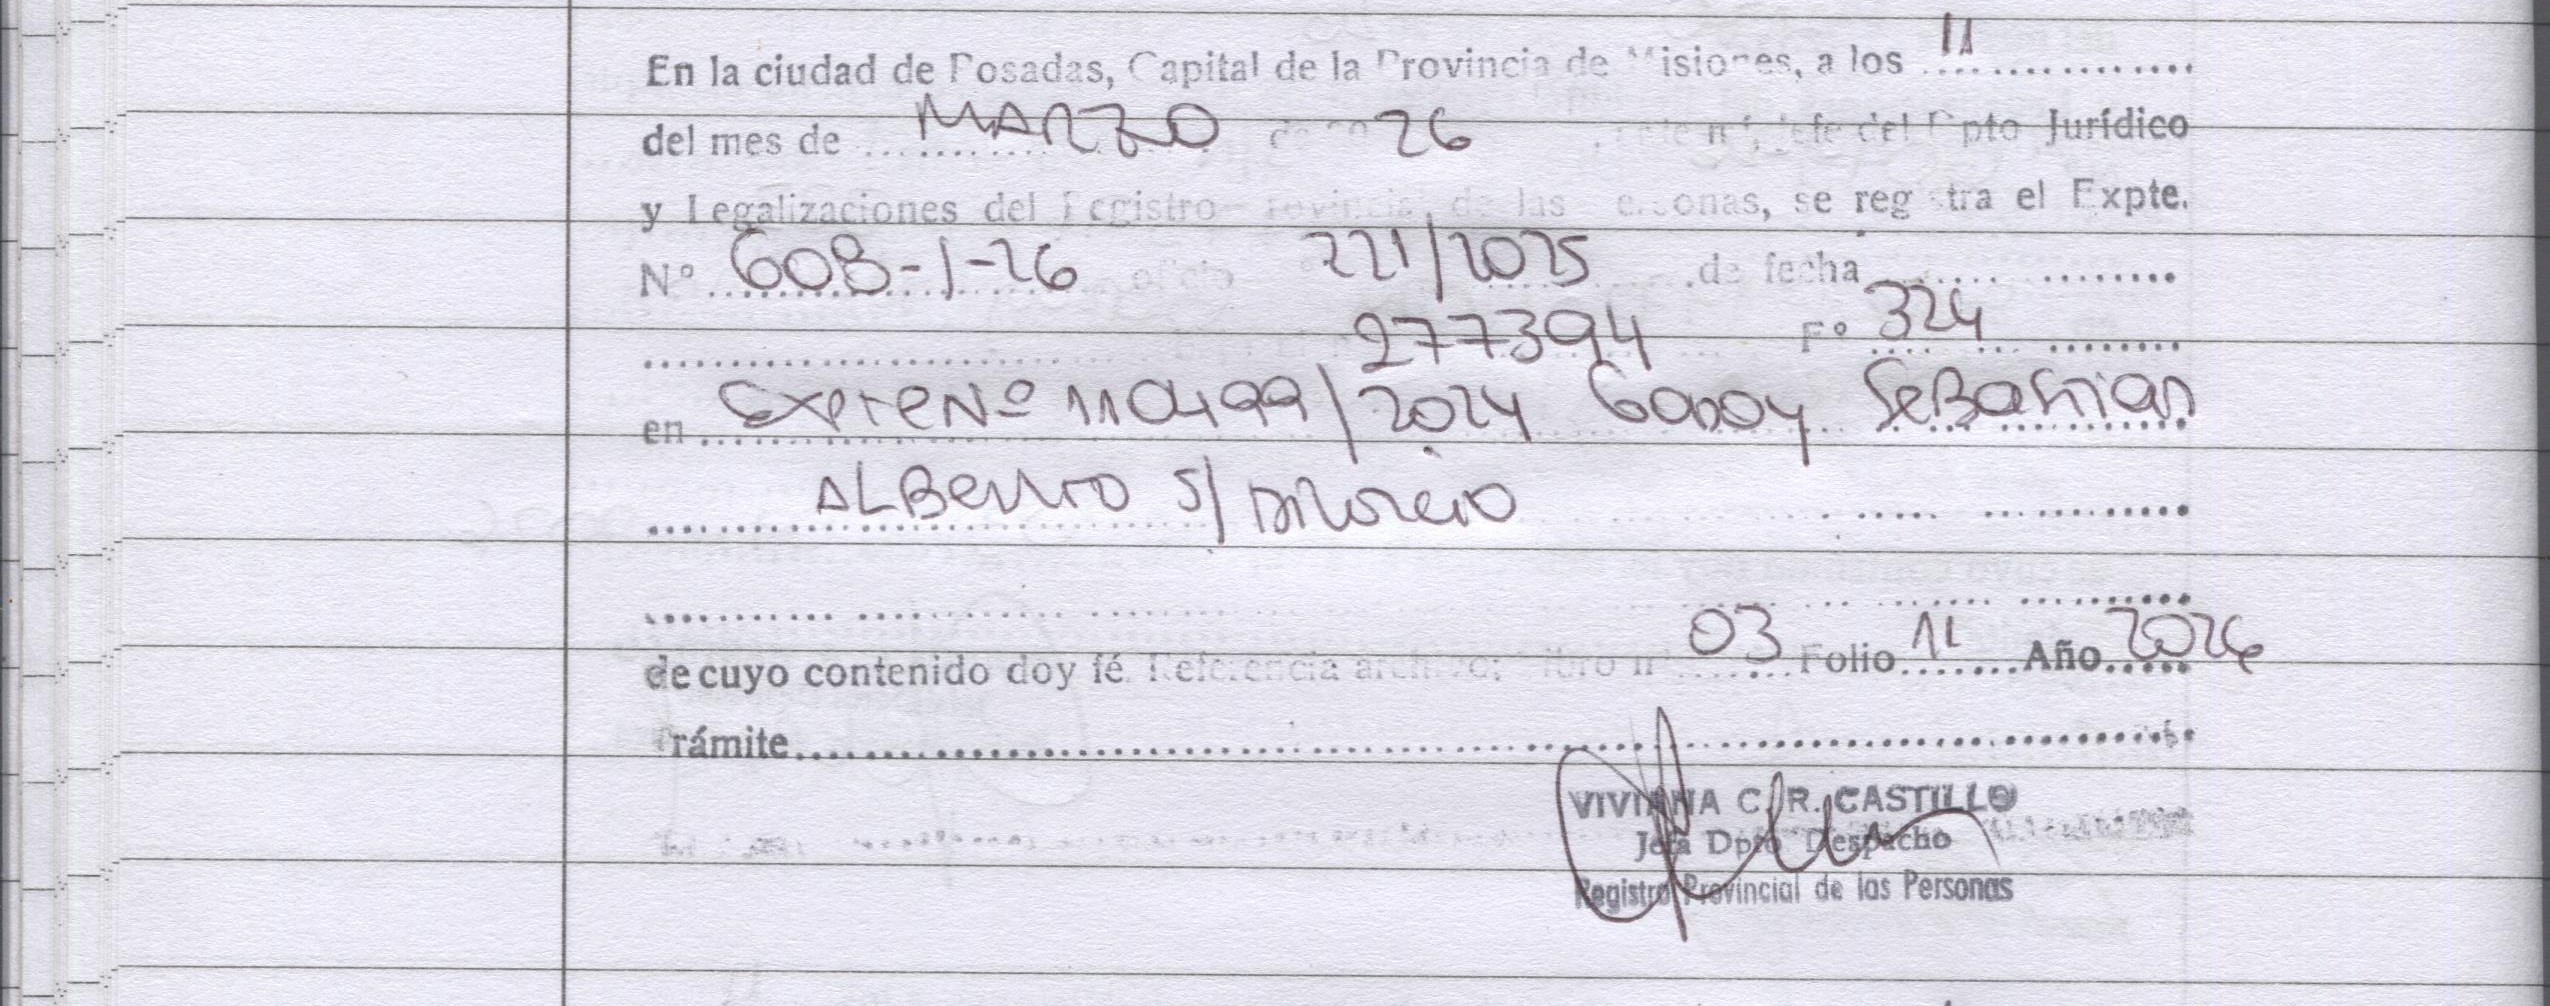 En la ciudad de Posadas, Capital de la Provincia de Misiones, a los 11
del mes de MARZO de 20 26 ante mí, Jefe del Dpto Jurídico
y Legalizaciones del Registro Provincial de las Personas, se registra el Expte.
Nº 608-J-26 oficio 221/2025 de fecha
277394 Fº 324
en Expte Nº 110499/2024 Godoy Sebastian
ALBerto S/ Divorcio
de cuyo contenido doy fé. Referencia archivo: Libro nº 03 Folio 11 Año 2026
Trámite
VIVIANA C. R. CASTILLO
Jefa Dpto Despacho
Registro Provincial de las Personas